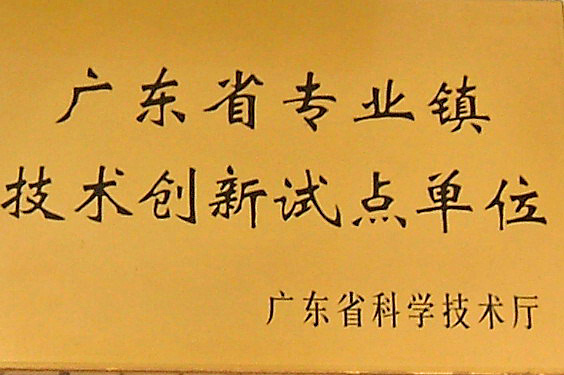 广东省专业镇
技术创新试点单位
广东省科学技术厅